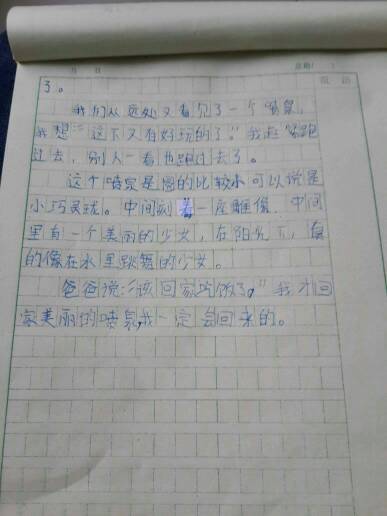 月 日
了。
我们从远处又看见了一个喷泉,
我想:“这下又有好玩的了。”我赶紧跑
过去,别人一看也跑过去了。
这个喷泉是圆的比较小可以说是
小巧灵珑。中间刻着一座雕像,中间
里有一个美丽的少女,在阳光下,真
的像在水里跳舞的少女。
爸爸说:“该回家吃饭了。”我才回
家美丽的喷泉,我一定会回来的。